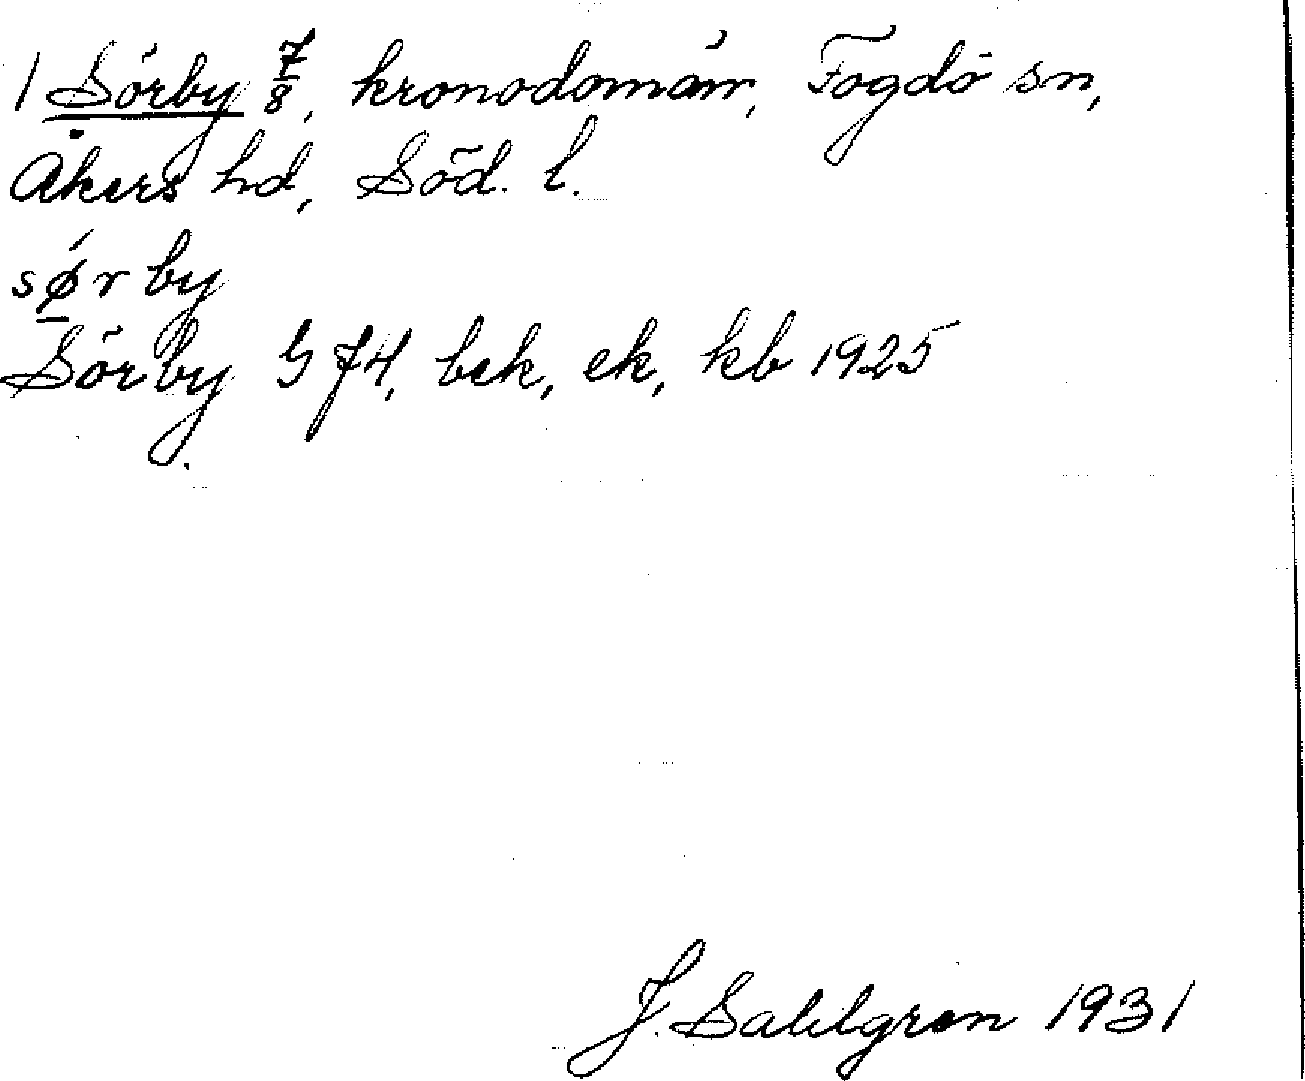 1 Sörby 7/8, kronodomän, Fogdö sn,
Åkers hd, Söd. l.
sǿrby
Sörby G 74, bek, ek, kb 1925
J. Sahlgren 1931